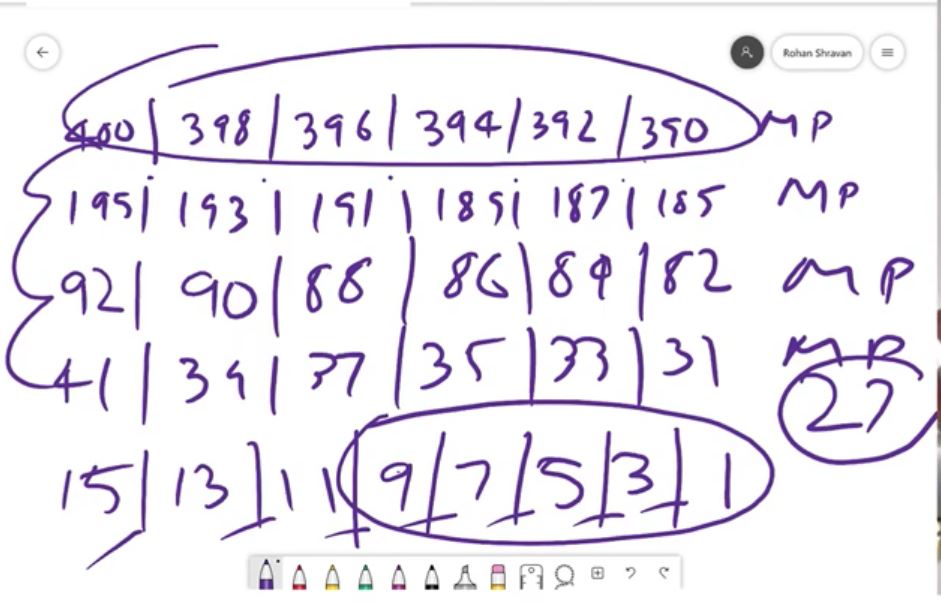 Rohan Shravan
400 | 398 | 396 | 394 | 392 | 390 MP
195 | 193 | 191 | 189 | 187 | 185 MP
92 | 90 | 88 | 86 | 84 | 82 MP
41 | 39 | 37 | 35 | 33 | 31 MP
27
15 | 13 | 11 | 9 | 7 | 5 | 3 | 1